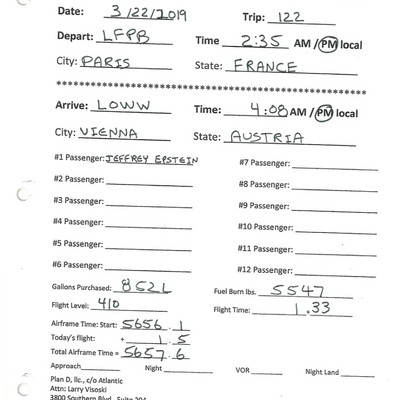 Date: 3/22/2019 Trip: 122
Depart: LFPB Time 2:35 AM/PM local
City: PARIS State: FRANCE
************************************************************
Arrive: LOWW Time: 4:08 AM/PM local
City: VIENNA State: AUSTRIA
#1 Passenger: JEFFREY EPSTEIN #7 Passenger:
#2 Passenger: #8 Passenger:
#3 Passenger: #9 Passenger:
#4 Passenger: #10 Passenger:
#5 Passenger: #11 Passenger:
#6 Passenger: #12 Passenger:
Gallons Purchased: 862L Fuel Burn lbs. 5547
Flight Level: 410 Flight Time: 1.33
Airframe Time: Start: 5656.1
Today's flight: + 1.5
Total Airframe Time = 5657.6
Approach Night VOR Night Land
Plan D, llc., c/o Atlantic
Attn: Larry Visoski
3800 Southern Blvd., Suite 204